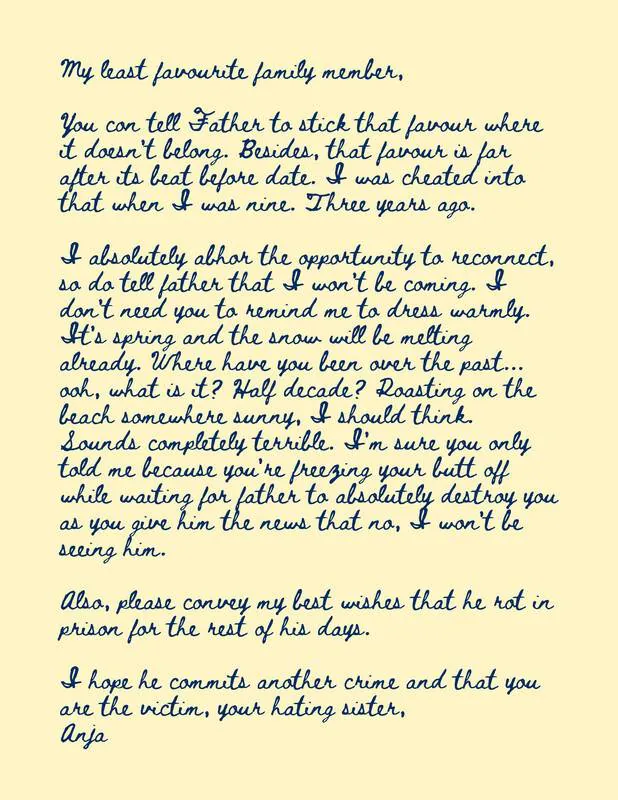 My least favourite family member,
You con tell Father to stick that favour where
it doesn't belong. Besides, that favour is far
after its beat before date. I was cheated into
that when I was nine. Three years ago.
I absolutely abhor the opportunity to reconnect,
so do tell father that I won't be coming. I
don't need you to remind me to dress warmly.
It's spring and the snow will be melting
already. Where have you been over the past...
ooh, what is it? Half decade? Roasting on the
beach somewhere sunny, I should think.
Sounds completely terrible. I'm sure you only
told me because you're freezing your butt off
while waiting for father to absolutely destroy you
as you give him the news that no, I won't be
seeing him.
Also, please convey my best wishes that he rot in
prison for the rest of his days.
I hope he commits another crime and that you
are the victim, your hating sister,
Anja